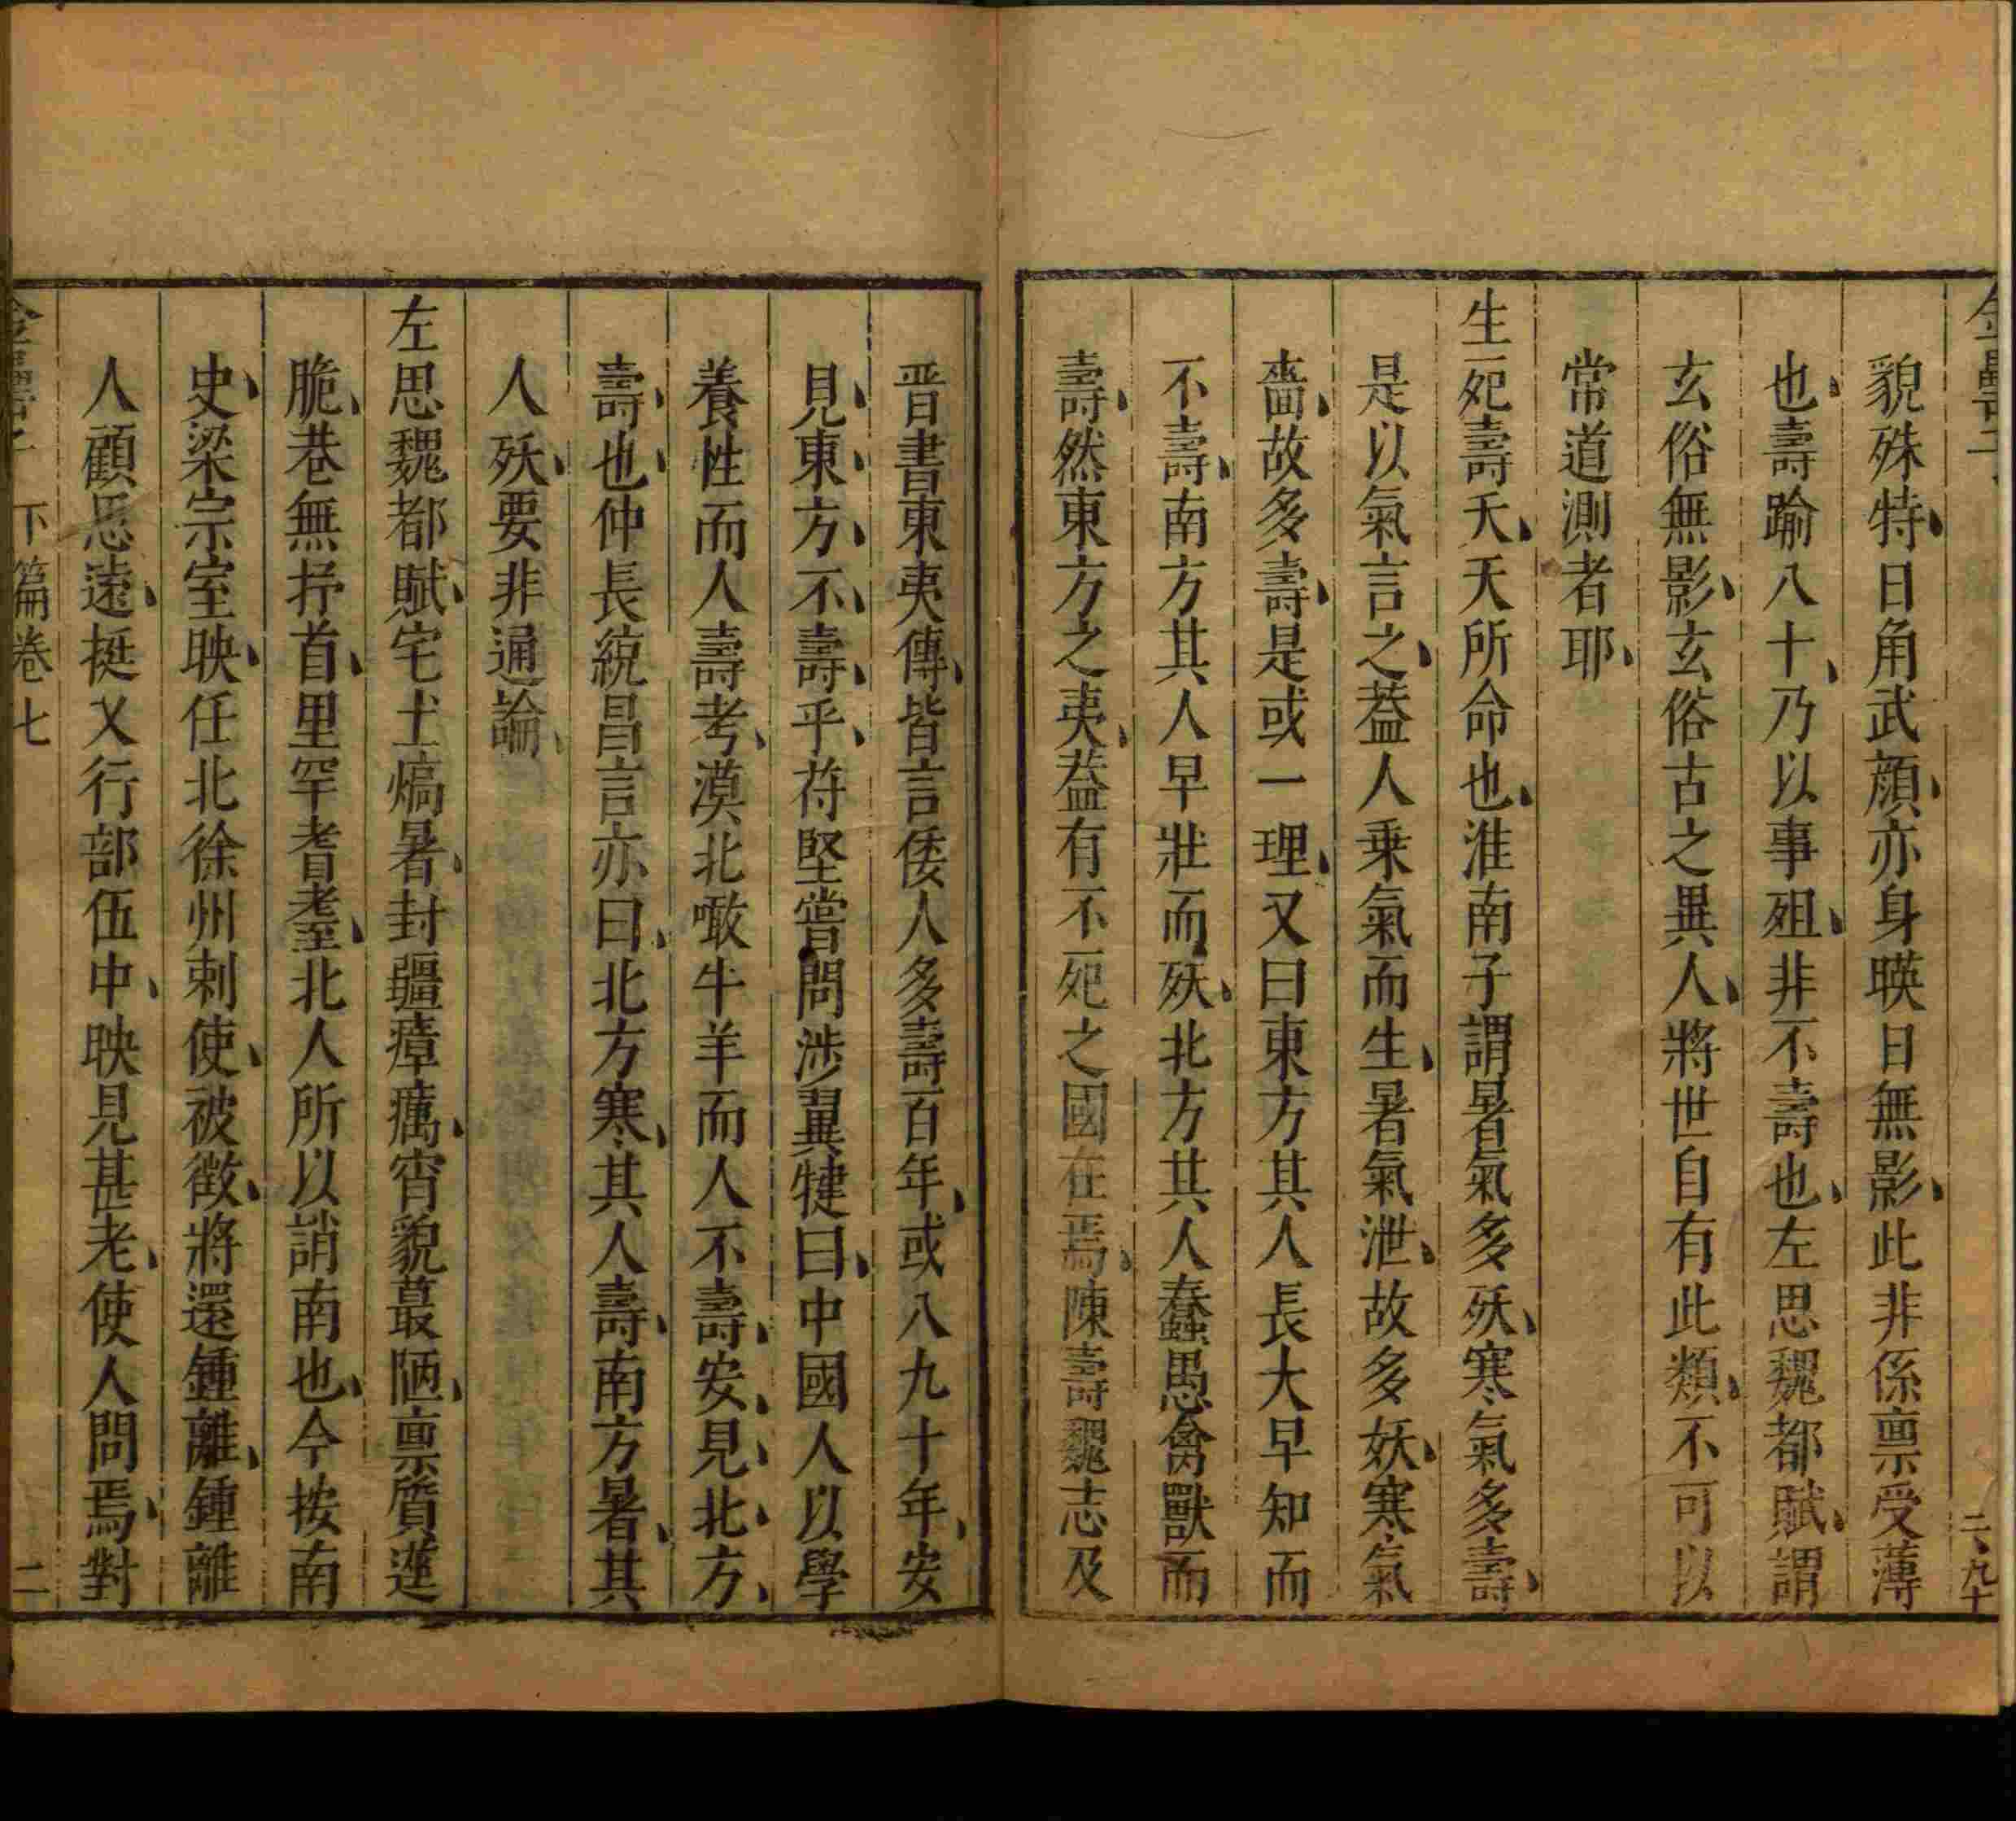 貌殊特日角武顔亦身暎日無影此非係禀受薄
也壽踰八十乃以事殂非不壽也左思魏都賦謂
玄俗無影玄俗古之異人將世自有此類不可以
常道測者耶
生死壽夭天所命也淮南子謂暑氣多殀寒氣多壽
是以氣言之葢人乗氣而生暑氣泄故多妖寒氣
嗇故多壽是或一理又曰東方其人長大早知而
不壽南方其人早壯而殀北方其人蠢愚禽獸而
壽然東方之夷葢有不死之國在焉陳壽魏志及
晋書東夷傳皆言倭人多壽百年或八九十年安
見東方不壽乎苻堅嘗問涉翼犍曰中國人以學
養性而人壽考漠北噉牛羊而人不壽安見北方
壽也仲長統昌言亦曰北方寒其人壽南方暑其
人殀要非通論
左思魏都賦宅土熇暑封疆瘴癘宵貌蕞陋禀質遳
脆巷無抒首里罕耆耋北人所以誚南也今按南
史梁宗室映任北徐州刺使被徴將還鍾離鍾離
人顧思遠挺又行部伍中映見甚老使人問焉對
下篇卷七
二